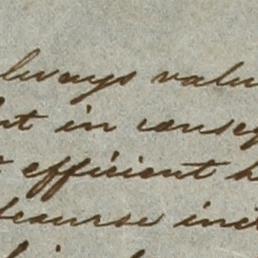 always valu
t in conseq
efficient h
course ind